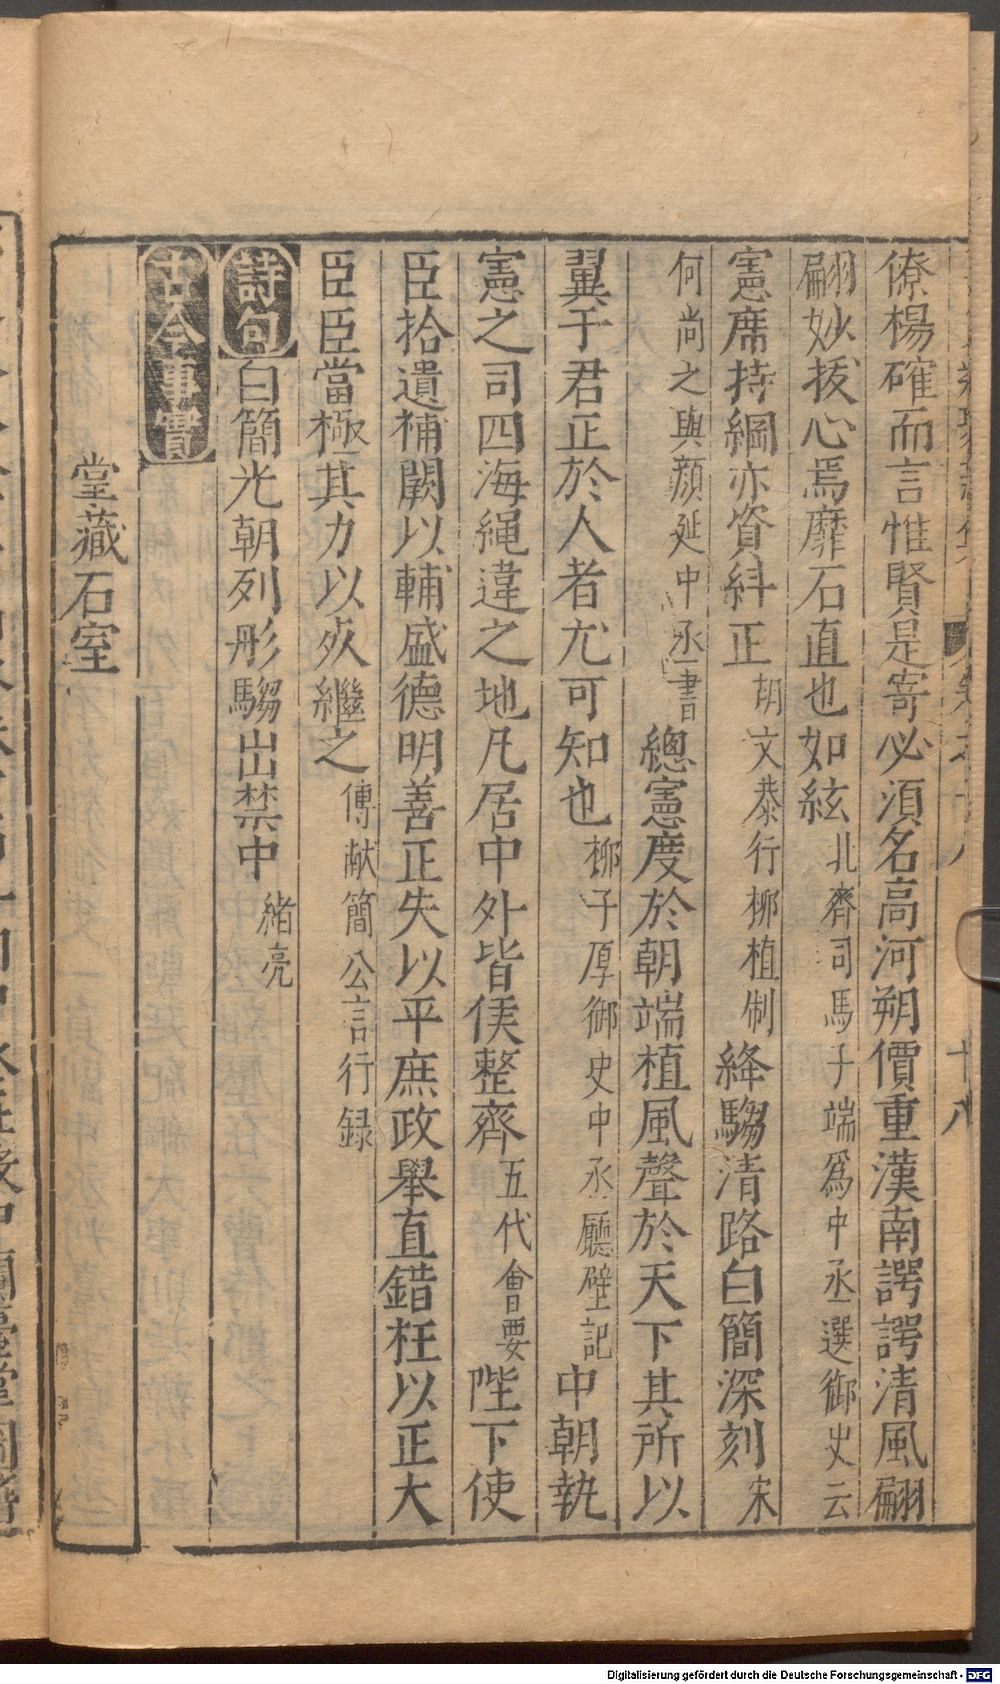 僚楊確而言惟賢是寄必湏名高河朔價重漢南諤諤清風翩
翩妙拔心焉靡石直也如絃北齊司馬子端爲中丞選御史云
憲席持綱亦資糾正胡文恭行柳植制絳騶清路白簡深刻宋
何尚之與顔延中丞書總憲度於朝端植風聲於天下其所以
翼于君正於人者尤可知也柳子厚御史中丞廳壁記中朝執
憲之司四海繩違之地凡居中外皆俟整齊五代會要陛下使
臣拾遺補闕以輔盛德明善正失以平庶政舉直錯枉以正大
臣臣當極其力以死繼之傅献簡公言行録
詩句白簡光朝列彤騶出禁中緒亮
古今事實
堂藏石室
十八
Digitalisierung gefördert durch die Deutsche Forschungsgemeinschaft - DFG